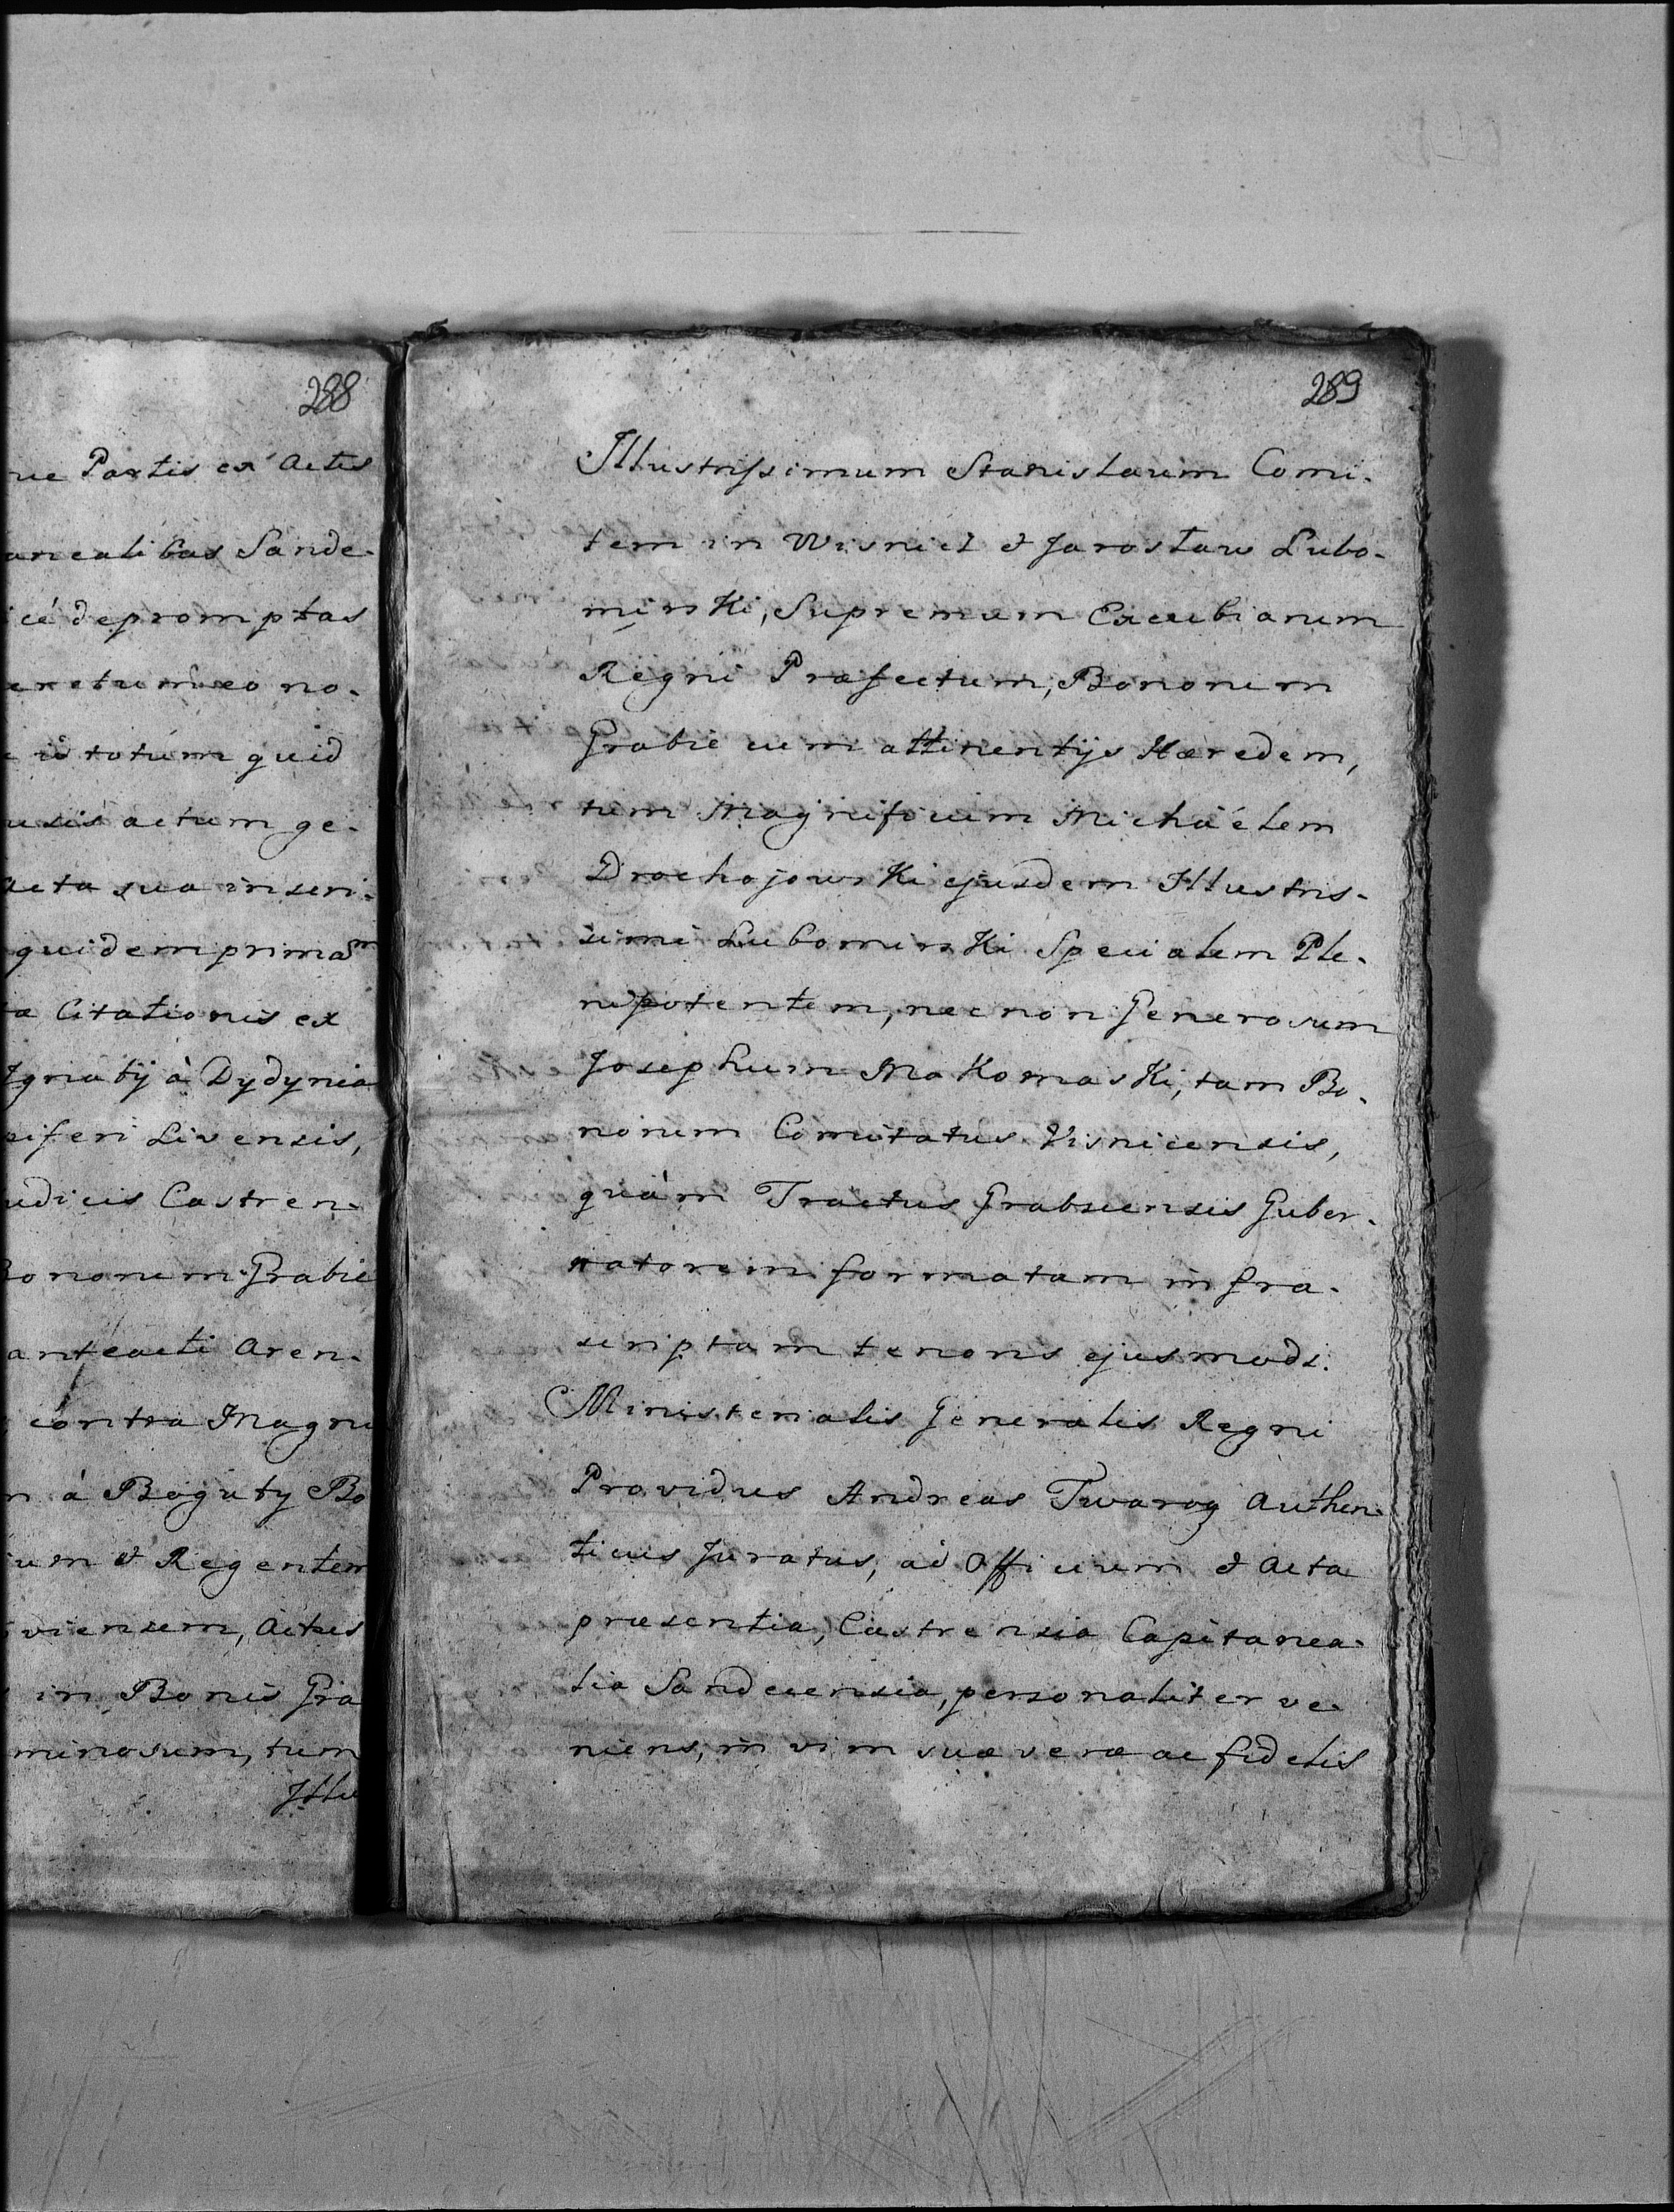 288
ue Partis ex Actis
anealibus Sande-
icé depromptas
cretum eo no-
totum quid
usis actum ge-
Acta sua inseri-
quidem primam
ta Citationis ex
Ignatij à Dydynia
piferi Livensis,
udicis Castren-
Bonorum Grabie
anteacti Aren-
contra Magni
n à Boguty Bo
um & Regentem
viensem, Actus
in Bonis Gra
minosum, tum
Illu
289
Illustrissimum Stanislaum Comi-
tem in Wisnicz & Jarosław Lubo-
mirski, Supremum Excubiarum
Regni Præfectum, Bonorum
Grabie cum attinentijs Hæredem,
tum Magnificum Michäélem
Drohojowski ejusdem Illustris-
simi Lubomirski Specialem Ple-
nipotentem, necnon Generosum
Josephum Makomaski, tam Bo-
norum Comitatus Visnicensis,
quàm Tractus Grabsiensis Guber-
natorem formatam infra-
scriptam tenoris ejusmodi.
Ministerialis Generalis Regni
Providus Andreas Twarog Authen-
ticus Juratus, ad Officium & Acta
præsentia, Castrensia Capitanea-
lia Sandecensia, personaliter ve-
niens, in vim suæ veræ ac fidelis